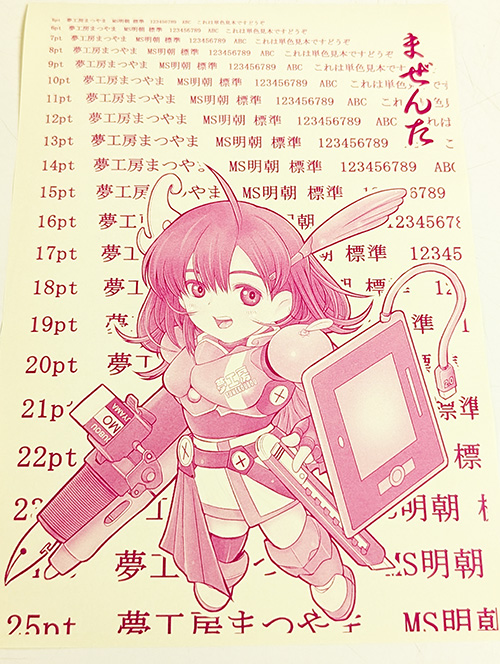 5pt 夢工房まつやま MS明朝 標準 123456789 ABC これは単色見本ですどうぞ
6pt 夢工房まつやま MS明朝 標準 123456789 ABC これは単色見本ですどうぞ
7pt 夢工房まつやま MS明朝 標準 123456789 ABC これは単色見本ですどうぞ
8pt 夢工房まつやま MS明朝 標準 123456789 ABC これは単色見本ですどうぞ
9pt 夢工房まつやま MS明朝 標準 123456789 ABC これは単色見
10pt 夢工房まつやま MS明朝 標準 123456789 ABC これは単
11pt 夢工房まつやま MS明朝 標準 123456789 ABC これ
12pt 夢工房まつやま MS明朝 標準 123456789 ABC こ
13pt 夢工房まつやま MS明朝 標準 123456789 ABC
14pt 夢工房まつや MS明朝 標準 123456789 ABC
15pt 夢工房 やま MS明朝 標準 123456789
16pt 夢工 MS明朝 標準 12345678
17pt 夢工房 標準 12345
18pt 夢工 標準
19pt 夢 準 1
20pt 夢工
21pt 標準
22pt 標
MS明朝
夢工 MS明朝
25pt 夢工房まつやま MS明朝
まぜんた
MO
夢工房